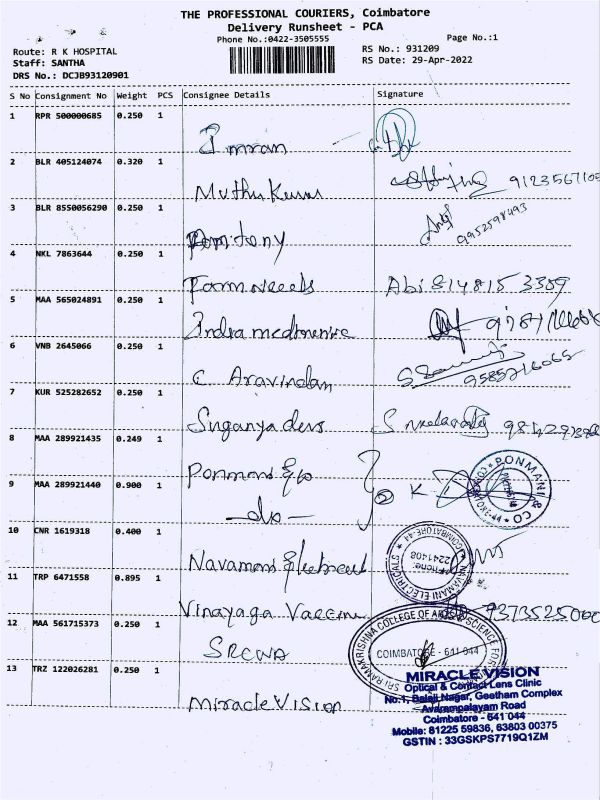 THE PROFESSIONAL COURIERS, Coimbatore
Delivery Runsheet - PCA
Phone No.:0422-3505555
Page No.:1
Route: R K HOSPITAL
RS No.: 931209
Staff: SANTHA
RS Date: 29-Apr-2022
DRS No.: DCJB93120901
S No Consignment No Weight PCS Consignee Details Signature
1 RPR 500000685 0.250 1
Imran
2 BLR 405124074 0.320 1
Muthukumar
3 BLR 8550056290 0.250 1
9952598493
4 NKL 7863644 0.250 1
Farm needs Abi 814815 3359
5 MAA 565024891 0.250 1
Indra
6 VNB 2645066 0.250 1
C. Aravindan 9585216065
7 KUR 525282652 0.250 1
Suganya devi
8 MAA 289921435 0.249 1
Ponmani & Co
9 MAA 289921440 0.900 1
-do-
PONMANI & CO
10 CNR 1619318 0.400 1
Navamani Electrical
NAVAMANI ELECTRICALS
COIMBATORE-44
Phone: 2241408
11 TRP 6471558 0.895 1
Vinayaga Vaccine 9373525000
12 MAA 561715373 0.250 1
SRCWA
SRI RAMAKRISHNA COLLEGE OF ARTS & SCIENCE FOR
COIMBATORE - 641 044
13 TRZ 122026281 0.250 1
Miracle Vision
MIRACLE VISION
Optical & Contact Lens Clinic
No.1, Balaji Nagar, Geetham Complex
Avarampalayam Road
Coimbatore - 641 044
Mobile: 81225 59836, 63803 00375
GSTIN : 33GSKPS7719Q1ZM